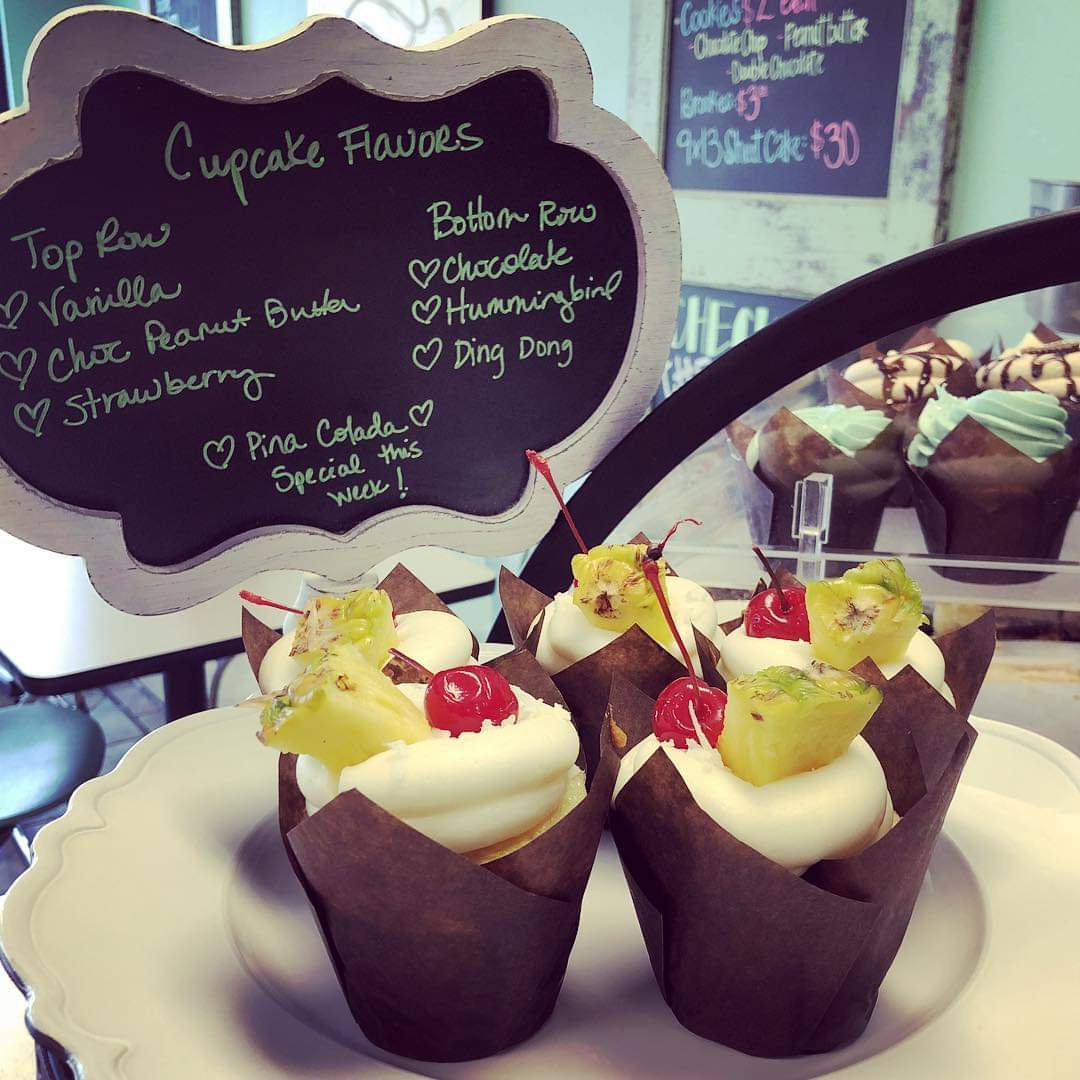 Cupcake Flavors
Top Row
♡ Vanilla
♡ Choc Peanut Butter
♡ Strawberry
Bottom Row
♡ Chocolate
♡ Hummingbird
♡ Ding Dong
♡ Pina Colada ♡
Special this
week!
Cookies $2 each
- Chocolate Chip - Peanut butter
- Double Chocolate
Brookies $3.00
9x13 Sheet Cake: $30
CHECK